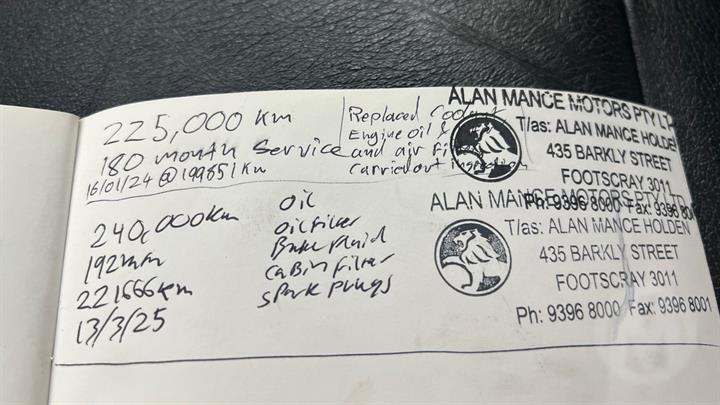 225,000 Km
180 month Service
16/01/24 @ 199651 Km
Replaced Coolant
Engine oil &
and air Fil
Carried out inspection
ALAN MANCE MOTORS PTY LT
T/as: ALAN MANCE HOLDEN
435 BARKLY STREET
FOOTSCRAY 3011
Ph: 9396 8000 Fax: 9396 8001
240,000km
192mm
221666km
13/3/25
Oil
oil filter
Brake fluid
Cabin filter
Spark plugs
ALAN MANCE MOTORS PTY LTD
T/as: ALAN MANCE HOLDEN
435 BARKLY STREET
FOOTSCRAY 3011
Ph: 9396 8000 Fax: 9396 8001